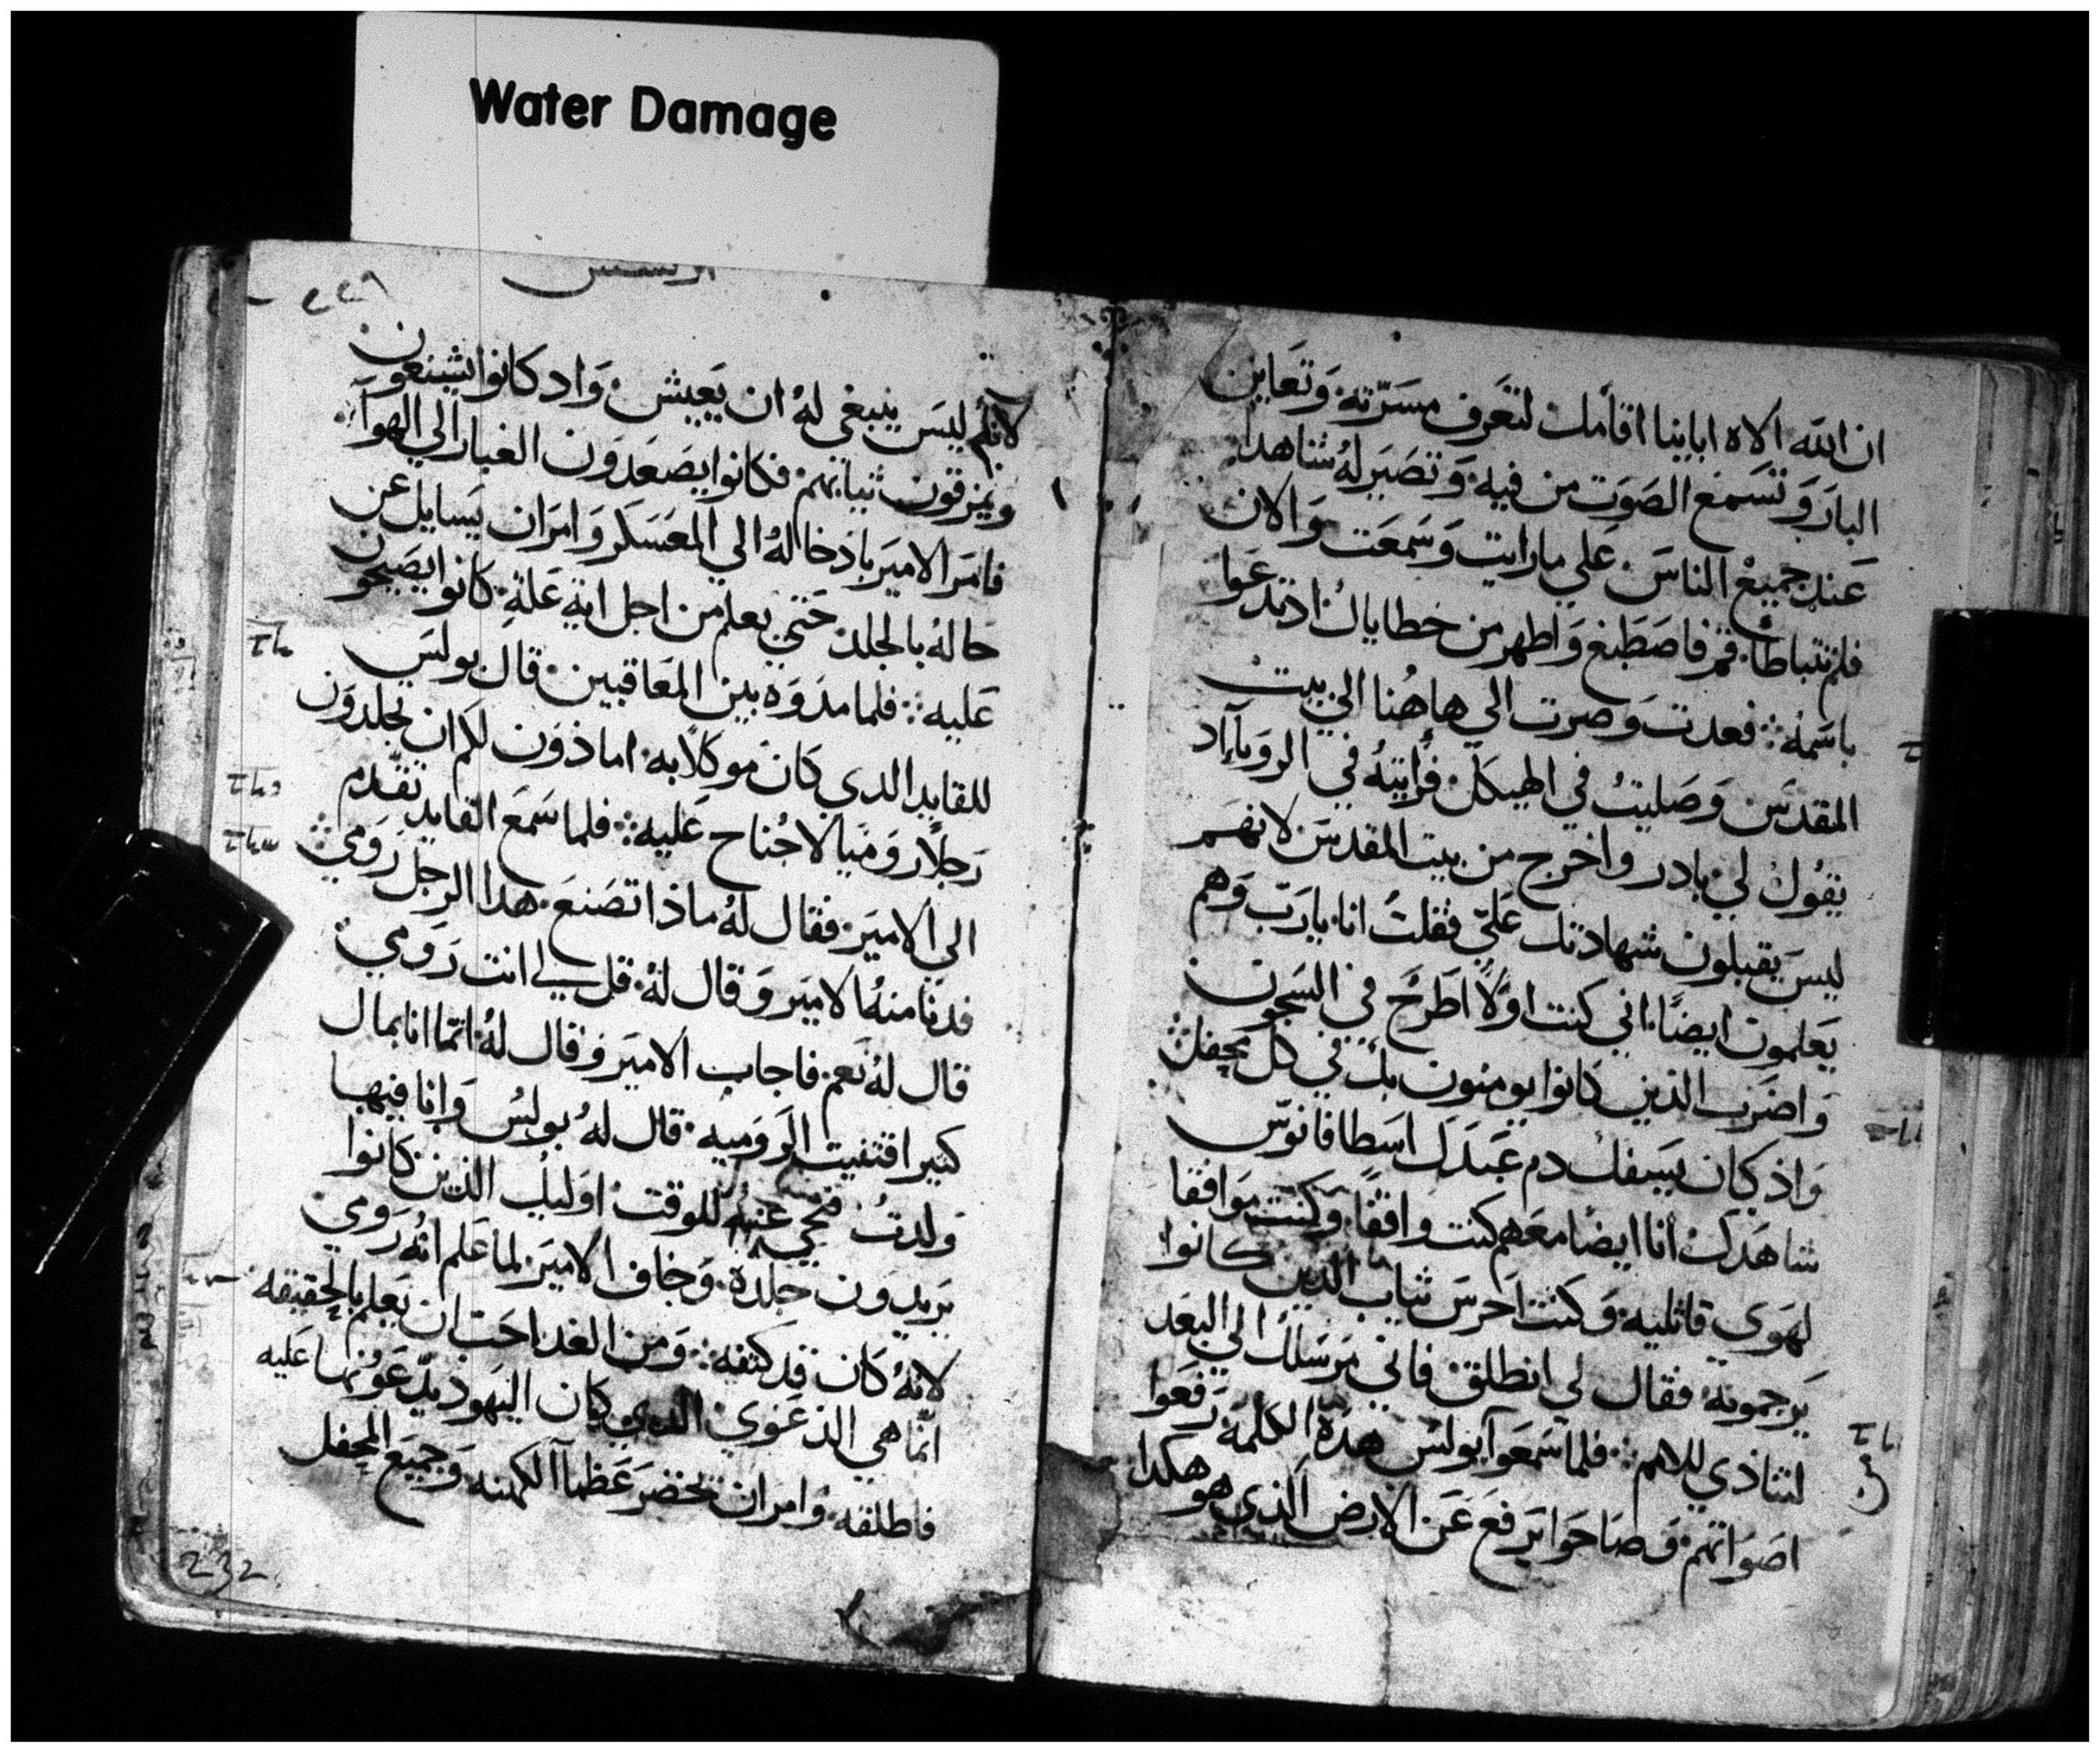 Water Damage
ان الله الاه اباينا اقامك لتعرف مسرّته وتعاين
البار وتسمع الصوت من فيه وتصير له شاهدا
عند جميع الناس على ما رايت وسمعت والان
فلم تتباطا قم فاصطبغ واطهر من خطاياك اذ تدعوا
باسمه فعدت وصرت الي هاهنا الي بيت
المقدس وصليت في الهيكل فرايته في الرويا اد
يقول لي بادر واخرج من بيت المقدس لانهم
ليس يقبلون شهادتك علي فقلت انا يارب وهم
يعلمون ايضا اني كنت اولا اطرح في السجون
واضرب الذين كانوا يومنون بك في كل محفل
واذ كان يسفك دم عبدك اسطافانوس
شاهدك انا ايضا معهم كنت واقفا وكنت موافقا
لهوي قاتليه وكنت احرس ثياب الدين كانوا
يرجمونه فقال لي انطلق فاني مرسلك الي البعد
لتناذي للامم فلما سمعوا بولس هده الكلمة رفعوا
اصواتهم وصاحوا يرفع عن الارض الذي هو هكدا
٢٢٨
لانه ليس ينبغي له ان يعيش واد كانوا يشنعون
ويمزقون ثيابهم فكانوا يصعدون الغبار الي الهوآ
فامر الامير باذخاله الي المعسكر وامر ان يسايل عن
حاله بالجلد حتي يعلم من اجل اية علة كانوا يصيحون
عليه فلما مدوه بين المعاقبين قال بولس
للقايد الدي كان موكلا به اماذون لكم ان تجلدون
رجلا روميا لا جناح عليه فلما سمع القايد تقدم
الي الامير فقال له ماذا تصنع هدا الرجل رومي
فدنا منه الامير وقال له قل لي انت رومي
قال له نعم فاجاب الامير وقال له انما انا بمال
كثير اقتنيت الروميه قال له بولس وانا فيها
ولدت فتنحي عنه للوقت اوليك الذين كانوا
يريدون جلده وخاف الامير لما علم انه رومي
لانه كان قد كتفه ومن الغد احب ان يعلم بالحقيقه
انما هي الدعوي الدي كان اليهود يدعونها عليه
فاطلقه وامر ان تحضر عظما الكهنه وجميع المحفل
232